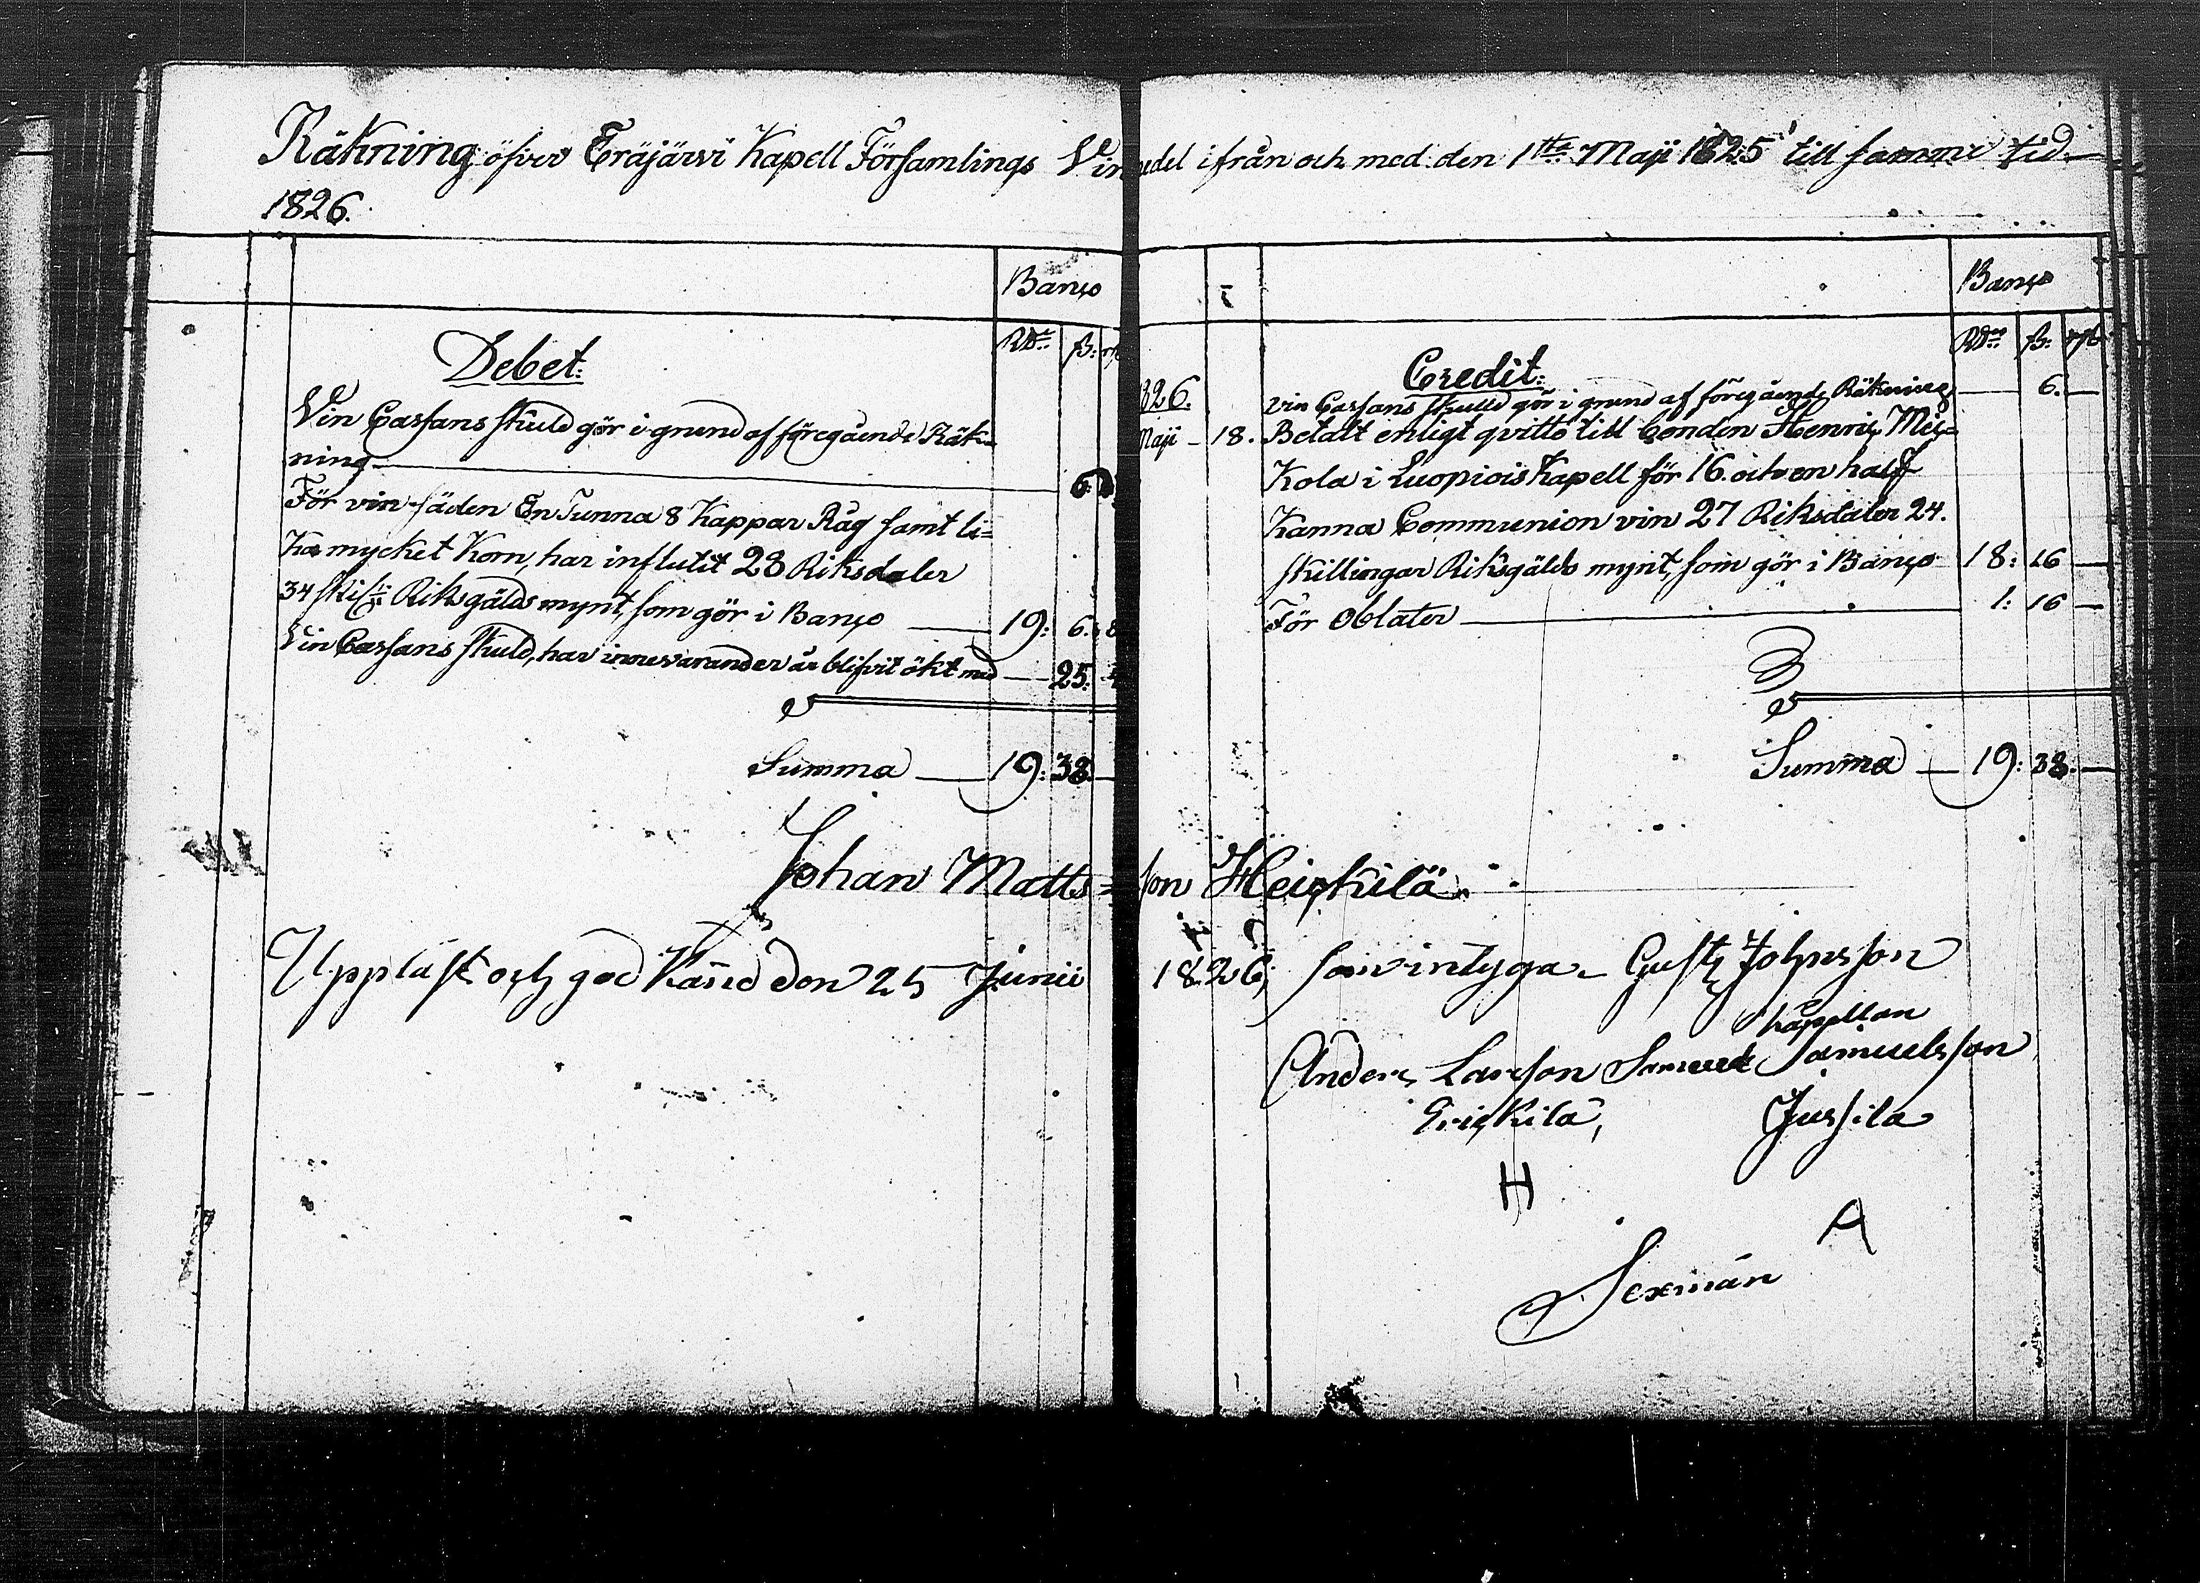 Räkning öfver Eräjärvi Kapell Församlings Vinmedel ifrån och med den 1sta Maji 1825 till samma tid
1826.
Banço
RDr ß: r/st
Debet:
Vin Cassans skuld gör i grund af föregående Räk=
ning 6:
För vin säden En Tunna 8 Kappar Råg samt li=
ka mycket Korn, har influtit 28 Riksdaler
34 skill: Riksgälds mynt, som gör i Banço 19: 6: 8
Vin Cassans skuld, har innevarande år blifvit ökt med 25: 4
Summa 19: 38. —
Banço
RDr ß: r/st
Credit:
1826. Vin Cassans skuld gör i grund af föregående Räkning — 6. —
Maji 18. Betalt enligt qvitto till bonden Henric Mic=
kola i Luopiois Kapell för 16. och en half
Kanna Communion vin 27 Riksdaler 24.
skillingar Riksgälds mynt, som gör i Banço 18: 16 —
För Oblater 1: 16 —
Summa 19: 38. —
Johan Matts=son Heickilä
Uppläst och god Känd den 25 Junii 1826, som intyga Gust: Johnsson
Kapellan
Anders Larsson Samuel Samuelsson
Erickila, Jussila
H A
Sexmän